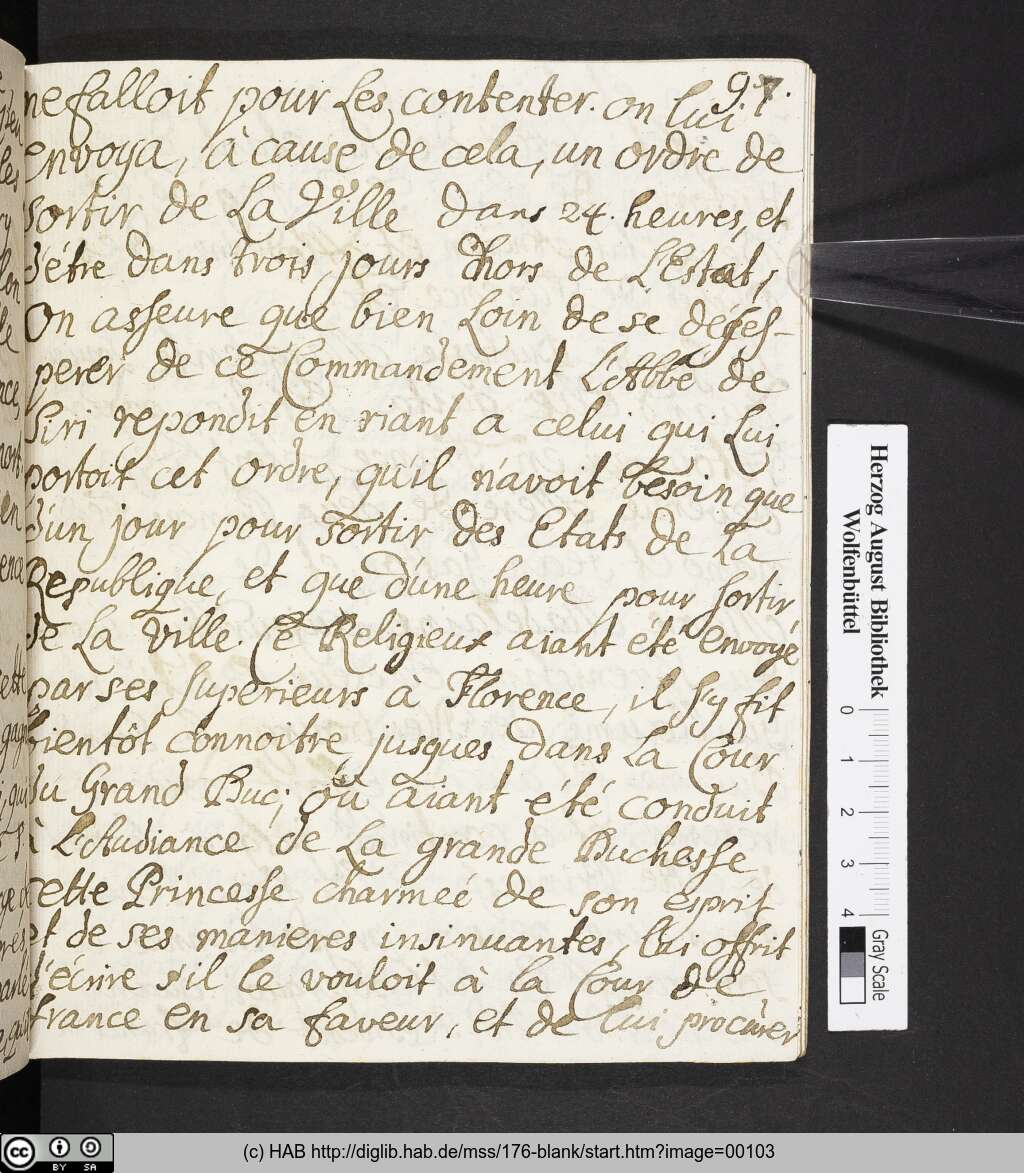 97.
ne falloit pour Les contenter. on lui
envoya, à cause de cela, un ordre de
sortir de La Ville dans 24. heures, et
d'étre dans trois jours dhors de L'Estat,
On asseure que bien Loin de se déses-
perer de ce Commandement L'Abbé de
Siri repondit en riant a celui qui Lui
portoit cet ordre, qu'il n'avoit besoin que
d'un jour pour sortir des Etats de La
Republique, et que d'une heure pour sortir
de La Ville. Ce Religieux aiant été envoyé
par ses superieurs à Florence, il s'y fit
bientôt connoitre jusques dans La Cour
du Grand Duc; où aiant été conduit
à L'Audiance de La grande Duchesse
cette Princesse charmeé de son esprit
et de ses manieres insinuantes, lui offrit
d'écrire s'il le vouloit à la Cour de
france en sa faveur, et de lui procurer
Herzog August Bibliothek
Wolfenbüttel
0 1 2 3 4
Gray Scale
cc BY SA
(c) HAB http://diglib.hab.de/mss/176-blank/start.htm?image=00103